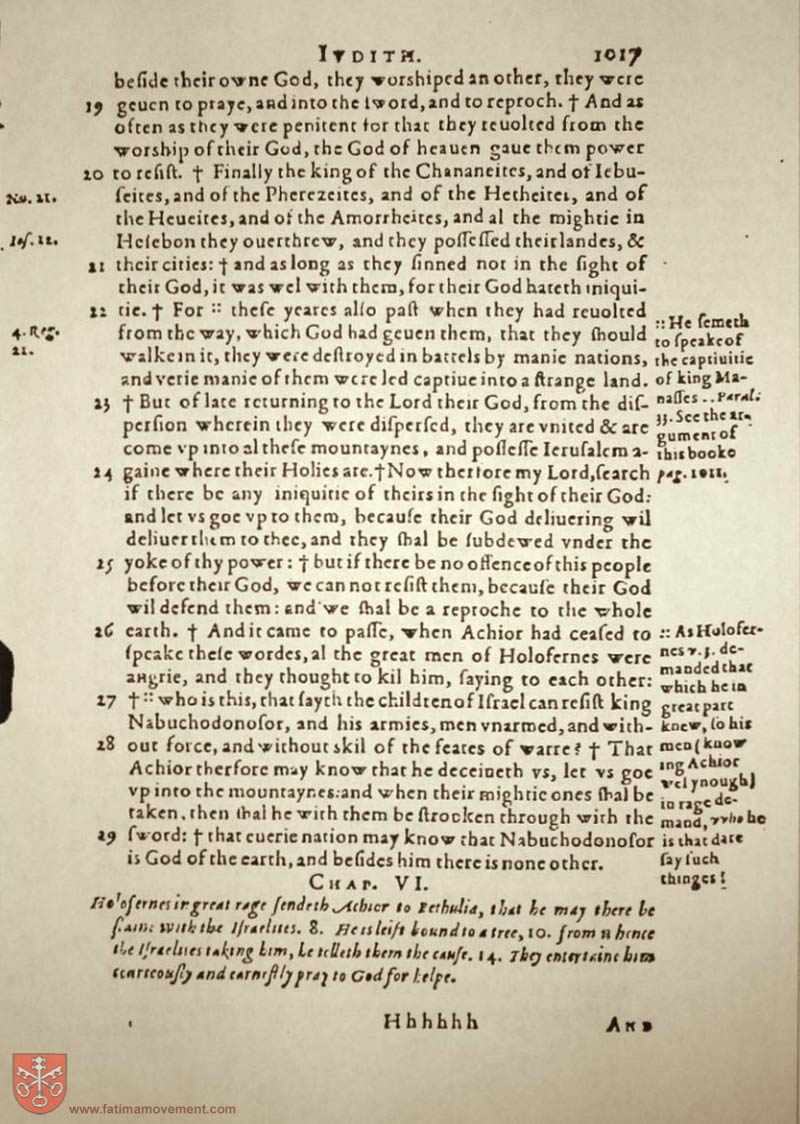 IVDITH. 1017
beside their owne God, they worshiped an other, they were
19 geuen to praye, and into the sword, and to reproch. † And as
often as they were penitent for that they reuolted from the
worship of their God, the God of heauen gaue them power
20 to resist. † Finally the king of the Chananeites, and of Iebu-
Nu. 21. seites, and of the Pherezeites, and of the Hetheites, and of
the Heueites, and of the Amorrheites, and al the mightie in
Ios. 12. Hesebon they ouerthrew, and they possessed their landes, &
21 their cities: † and as long as they sinned not in the sight of
their God, it was wel with them, for their God hateth iniqui-
22 tie. † For :: these yeares also past when they had reuolted
4. Reg. from the way, which God had geuen them, that they should
21. walke in it, they were destroyed in battels by manie nations,
and verie manie of them were led captiue into a strange land.
23 † But of late returning to the Lord their God, from the dis-
persion wherein they were dispersed, they are vnited & are
come vp into al these mountaynes, and possesse Ierusalem a-
24 gaine where their Holies are. † Now therfore my Lord, search
if there be any iniquitie of theirs in the sight of their God:
and let vs goe vp to them, because their God deliuering wil
deliuer them to thee, and they shal be subdewed vnder the
25 yoke of thy power: † but if there be no offence of this people
before their God, we can not resist them, because their God
wil defend them: and we shal be a reproche to the whole
26 earth. † And it came to passe, when Achior had ceased to
speake these wordes, al the great men of Holofernes were
angrie, and they thought to kil him, saying to each other:
27 † :: who is this, that sayth the children of Israel can resist king
Nabuchodonosor, and his armies, men vnarmed, and with-
28 out force, and without skil of the feates of warre? † That
Achior therfore may know that he deceiueth vs, let vs goe
vp into the mountaynes: and when their mightie ones shal be
taken, then shal he with them be strooken through with the
29 sword: † that euerie nation may know that Nabuchodonosor
is God of the earth, and besides him there is none other.
:: He semeth
to speake of
the captiuitie
of king Ma-
nasses 2. Paral.
33. See the ar-
gument of
this booke
pag. 1011.
:: As Holofer-
nes v. 3. de-
manded that
which he in
great part
knew, so his
men (know
ing Achior
wel ynough)
in rage de-
mand, who he
is that dare
say such
thinges!
CHAP. VI.
Holofernes in great rage sendeth Achior to Bethulia, that he may there be
slaine with the Israelites. 8. He is leift bound to a tree, 10. from whence
the Israelites taking him, he telleth them the cause. 14. They entertaine him
courteously and earnestly pray to God for helpe.
Hhhhhh AND
www.fatimamovement.com